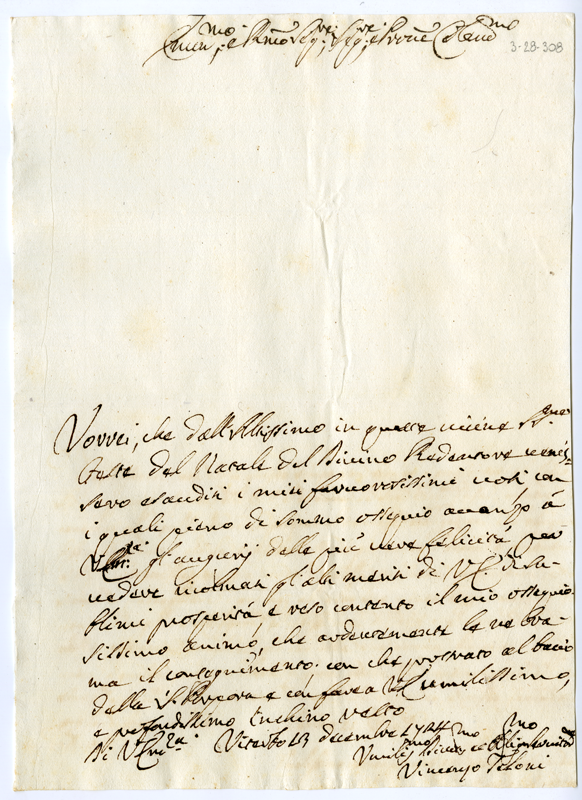 Em.mo e R.mo Sig.re Sig.re e Prone Col.mo
3-28-308
Vorrei, che dall'Altissimo in queste vicine S.me
feste del Natale del Divino Redentore venis-
sero esauditi i miei fervorosissimi voti con
i quali pieno di sommo ossequio avanzo à
V. Em.za gl'augurij delle più vere felicità per
vedere ricolmati gl'alti meriti di V. E. di su-
blimi prosperità e reso contento il mio ossequio-
sissimo animo, che ardentemente le ne bra-
ma il conseguimento. con che prostrato al bacio
della S. Porpora e con fare a V. E. umilissimo,
e profondissimo inchino resto
Di V. Em.za Viterbo 13 decembre 1744
Umil.mo Dev.mo ed Oblig.mo Servitore
Vincenzo